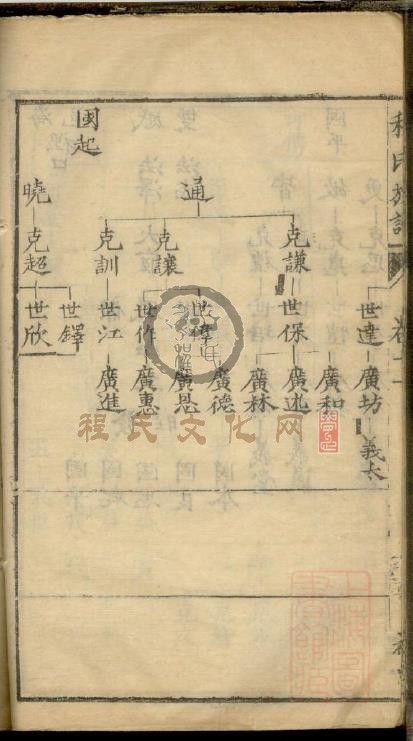 程氏
卷二
國起
通
曉
克謙
克讓
克訓
克超
世達
世保
世作
世江
世鐸
世欣
廣坊
廣和
廣述
廣林
廣德
廣恩
廣惠
廣進
義太
程氏文化网